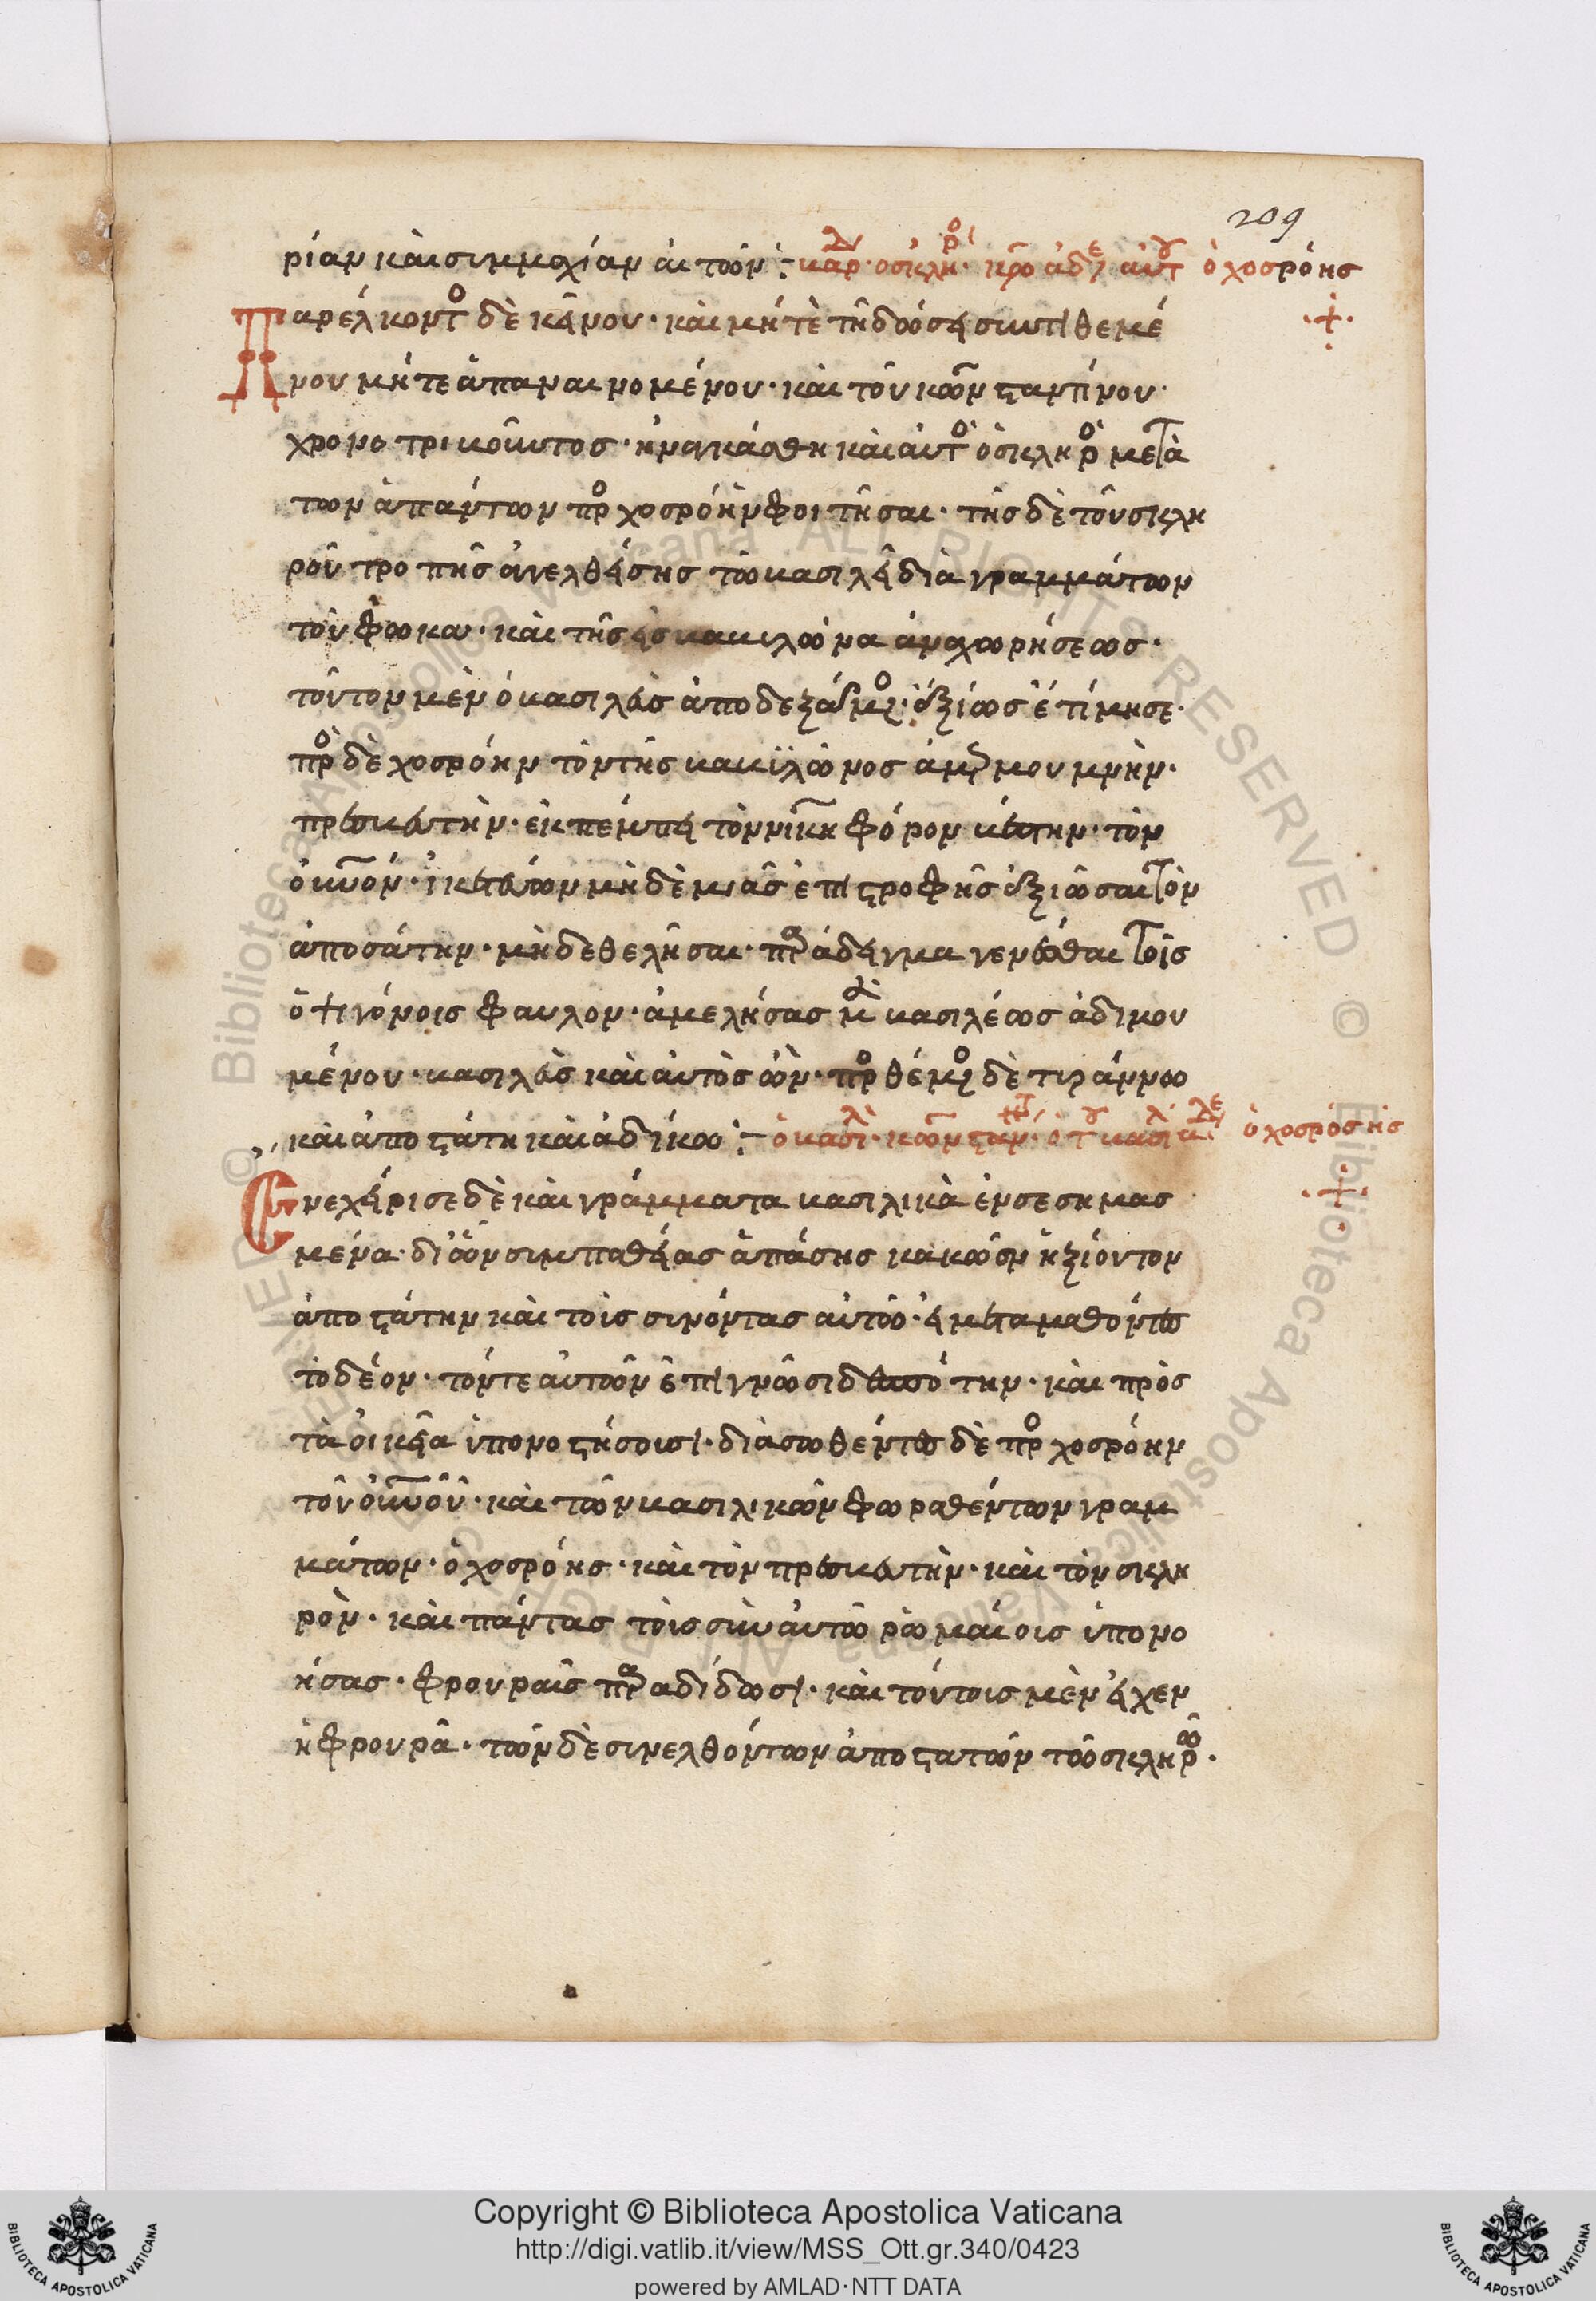 209
ρίαν καὶ συμμαχίαν αἰτῶν :- βάρδ· ο σκληρό· κων ἀδε αὐτοῦ ὁ χοσρόης
Παρέλκοντο δὲ κεῖνου· καὶ μήτε τῆ δώσει συντιθεμέ
νου μήτε ἀπαναινομένου· καὶ τοῦ κωνσταντίνου·
χρονοτριβοῦντος· ἠναγκάσθη καὶ αὐτὸ ὁ σκληρὸ μετὰ
τῶν ἁπάντων προ χοσρόην φοιτῆσαι· τῆς δὲ τοῦ σκλη
ροῦ τροπῆς ἀγγελθείσης τῶ βασιλεῖ διὰ γραμμάτων
τοῦ φωκα· καὶ τῆς εἰς βαβυλῶνα ἀναχωρήσεως·
τοῦτον μὲν ὁ βασιλεὺς ἀποδεξάμενο· ἀξίως ἐτίμησε·
πρὸ δὲ χοσρόην τὸν τῆς βαβϋλῶνος ἀμερμουμνῆν·
πρεσβευτὴν· ἐκπέμπει τὸν νικηφόρον βέστην· τὸν
οὐρανόν· ἱκετεύων μὴδὲ μιᾶς ἐπιστροφῆς ἀξιῶσαι τὸν
ἀποσάτην· μὴδε θελῆσαι· παράδειγμα γενέσθαι τοῖς
ὀψιγόνοις φαυλον· ἀμελήσας μὲν βασιλέως ἀδικου
μένου· βασιλεὺς καὶ αὐτὸς ὢν· προθέμενο δὲ τιράννω
καὶ ἀποστάτη καὶ ἀδίκω :- ὁ βασιλ· κωνσταν· ὁ χοσρόσης
Ενεχείρισε δὲ καὶ γράμματα βασιλικὰ ἐνσεσημασ
μένα· δι' ὧν συμπαθείας ἁπάσης κακῶσν ἠξίου τον
ἀποστάτην καὶ τοὶς συνόντας αὐτῶ· εἰ μεταμαθόντες
τὸ δέον· τόντε αὐτῶν ἐπιγνῶσι δεσπότην· καὶ πρὸς
τὰ οἰκεῖα ὑπονοστήσουσι· διασωθέντος δὲ προ χοσρόην
τοῦ οὐρανοῦ· καὶ τῶν βασιλικῶν φωραθέντων γραμ
μάτων· ὁ χοσρόης· καὶ τὸν πρεσβευτὴν· καὶ τὸν σκλη
ρὸν· καὶ πάντας τοὶς σὺν αὐτῶ ρωμαίοις ὑπονο
ήσας· φρουραῖς παραδίδωσι· καὶ τούτοις μὲν εἶχεν
ἡ φρουρᾶ· τῶν δὲ συνελθόντων ἀποστατῶν τῶ σκληρῶ·
Copyright © Biblioteca Apostolica Vaticana
http://digi.vatlib.it/view/MSS_Ott.gr.340/0423
powered by AMLAD·NTT DATA
BIBLIOTECA APOSTOLICA VATICANA
BIBLIOTECA APOSTOLICA VATICANA